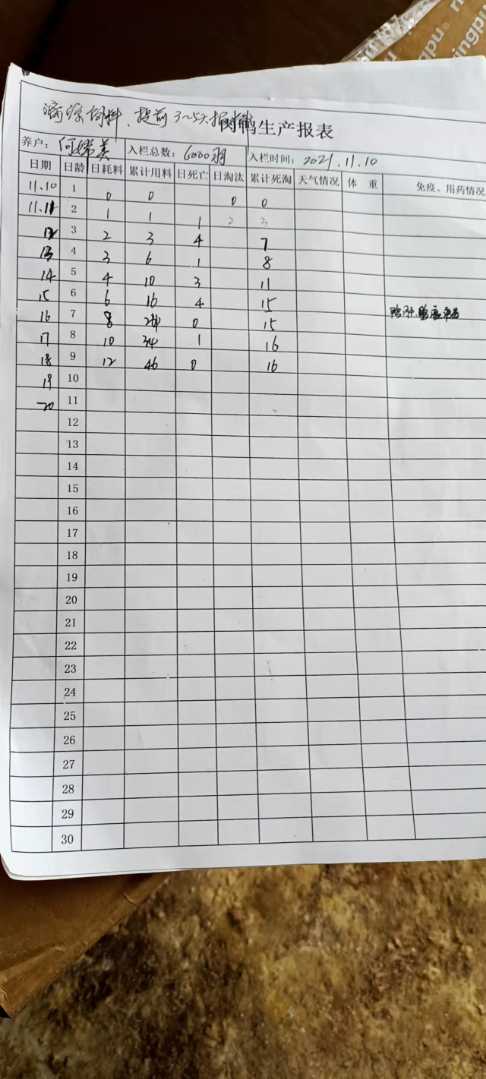 ningpu
ningpu
需添饲料、提前3~5天报料
肉鸭生产报表
养户: 何
入栏总数: 6000羽
入栏时间: 2021.11.10
日期 日龄 日耗料 累计用料 日死亡 日淘汰 累计死淘 天气情况 体 重 免疫、用药情况
11.10 1 0 0 0 0
11.11 2 1 1 1 2 3
12 3 2 3 4 7
13 4 3 6 1 8
14 5 4 10 3 11
15 6 6 16 4 15
16 7 8 24 0 15
17 8 10 34 1 16
18 9 12 46 0 16
19 10
20 11
12
13
14
15
16
17
18
19
20
21
22
23
24
25
26
27
28
29
30